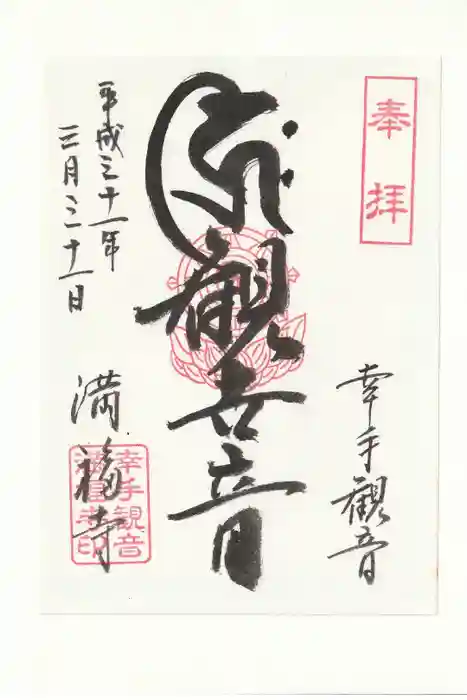 奉拝
幸手観音
観世音
平成三十一年
三月三十一日
満福寺
幸手観音